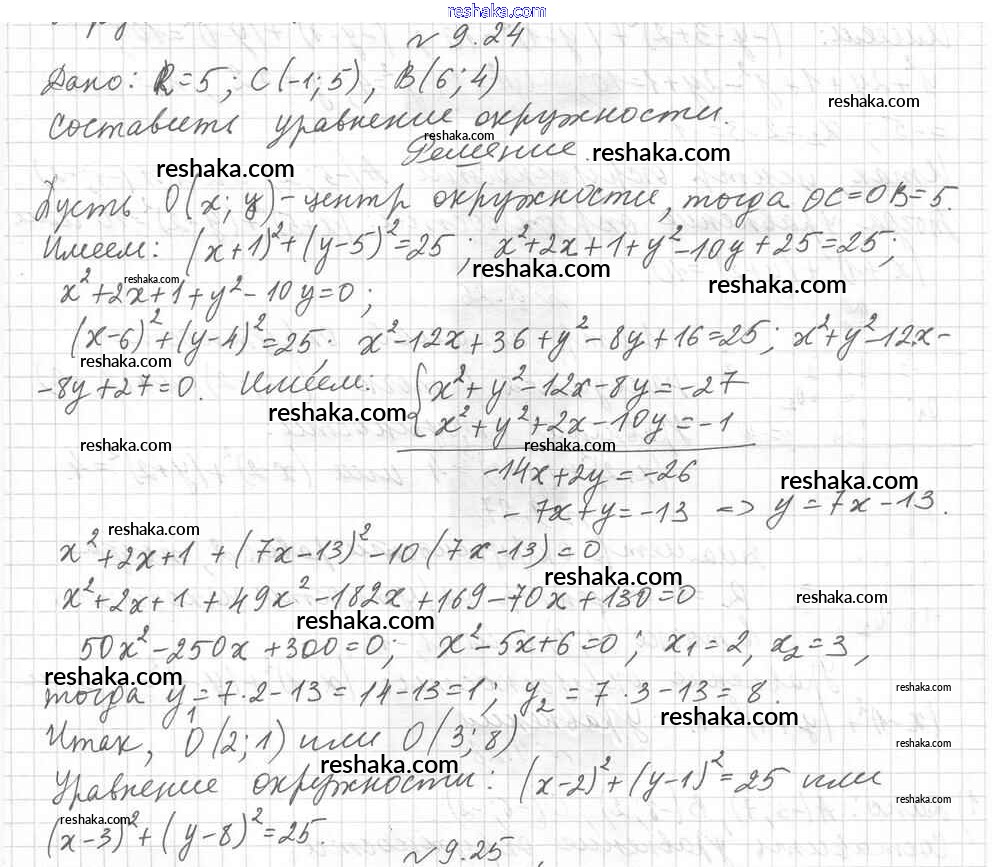 reshaka.com
№ 9.24
Дано: R=5; C(-1;5), B(6;4)
reshaka.com
Составить уравнение окружности.
reshaka.com
Решение.
reshaka.com
reshaka.com
Пусть O(x; y) - центр окружности, тогда OC=OB=5.
Имеем: (x+1)²+(y-5)²=25; x²+2x+1+y²-10y+25=25;
reshaka.com
reshaka.com
reshaka.com
x²+2x+1+y²-10y=0;
(x-6)²+(y-4)²=25; x²-12x+36+y²-8y+16=25; x²+y²-12x-
reshaka.com
-8y+27=0. Имеем: { x²+y²-12x-8y=-27
reshaka.com
x²+y²+2x-10y=-1
reshaka.com
reshaka.com
-14x+2y=-26
reshaka.com
-7x+y=-13 => y=7x-13.
reshaka.com
x²+2x+1+(7x-13)²-10(7x-13)=0
reshaka.com
x²+2x+1+49x²-182x+169-70x+130=0
reshaka.com
reshaka.com
50x²-250x+300=0; x²-5x+6=0; x₁=2, x₂=3,
reshaka.com
тогда y₁=7·2-13=14-13=1; y₂=7·3-13=8.
reshaka.com
reshaka.com
Итак, O(2;1) или O(3;8)
reshaka.com
reshaka.com
Уравнение окружности: (x-2)²+(y-1)²=25 или
reshaka.com
reshaka.com
(x-3)²+(y-8)²=25.
№ 9.25